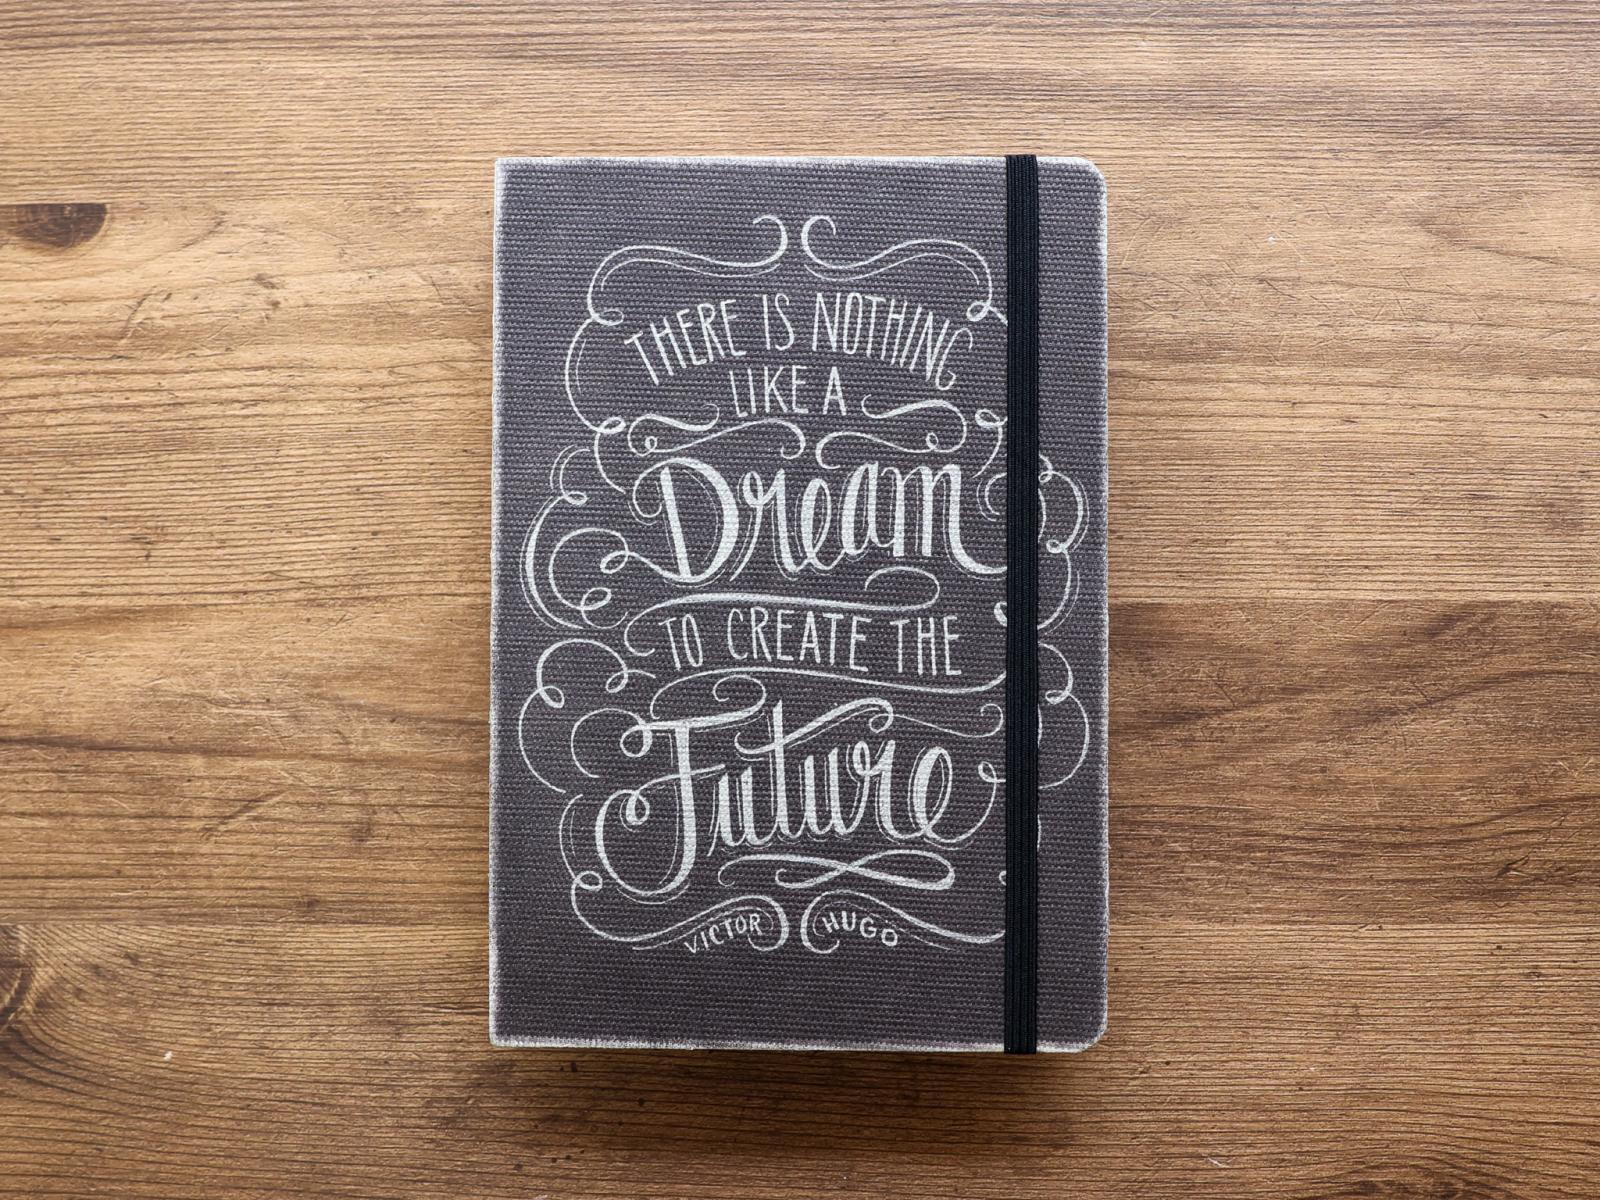 THERE IS NOTHING
LIKE A
Dream
TO CREATE THE
Future
VICTOR HUGO